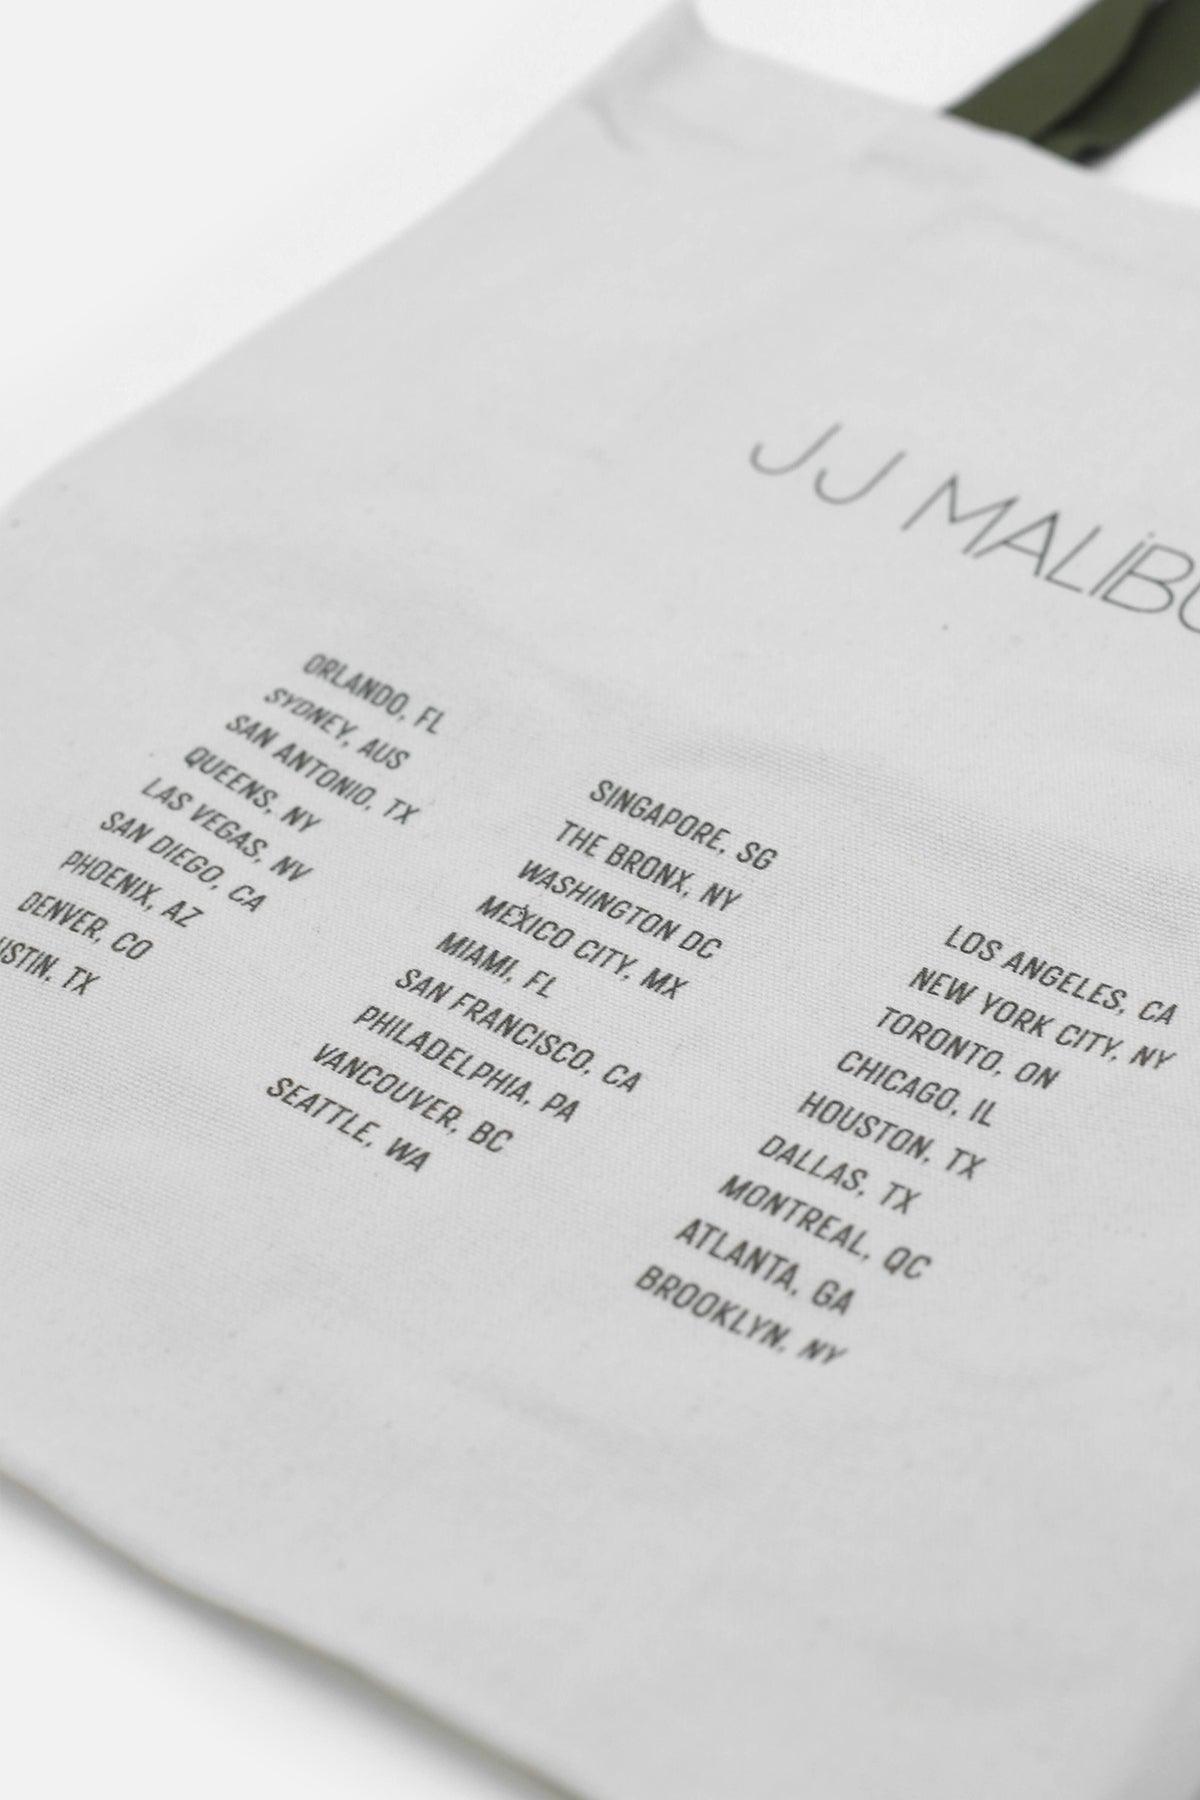 JJ MALIBU
ORLANDO, FL
SYDNEY, AUS
SAN ANTONIO, TX
QUEENS, NY
LAS VEGAS, NV
SAN DIEGO, CA
PHOENIX, AZ
DENVER, CO
USTIN, TX
SINGAPORE, SG
THE BRONX, NY
WASHINGTON DC
MEXICO CITY, MX
MIAMI, FL
SAN FRANCISCO, CA
PHILADELPHIA, PA
VANCOUVER, BC
SEATTLE, WA
LOS ANGELES, CA
NEW YORK CITY, NY
TORONTO, ON
CHICAGO, IL
HOUSTON, TX
DALLAS, TX
MONTREAL, QC
ATLANTA, GA
BROOKLYN, NY